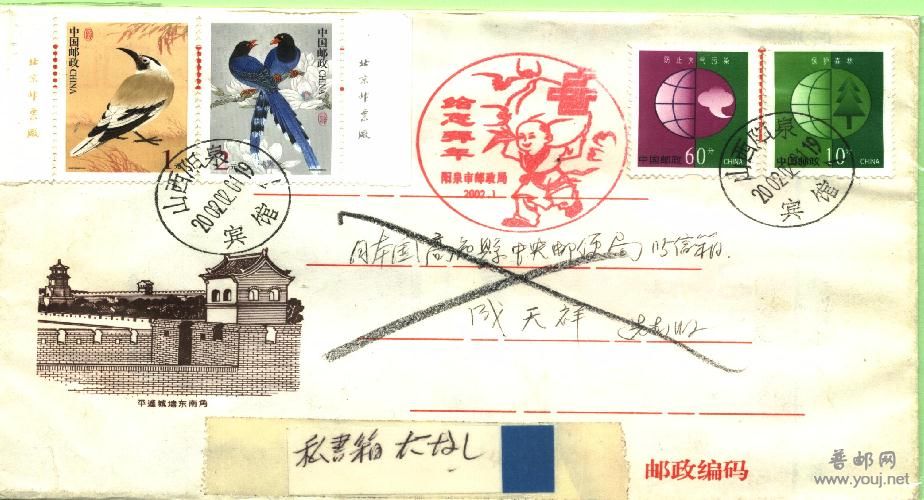 北京邮票厂
中国邮政
CHINA
1
中国邮政
CHINA
2
北京邮票厂
给您拜年
阳泉市邮政局
2002.1
防止大气污染
60分
中国邮政
CHINA
保护森林
10分
中国邮政
CHINA
山西阳泉
2002.02.01.19
宾馆
山西阳泉
2002.02.01.19
宾馆
日本国高知縣中央郵便局 信箱
成天祥
平遥城墙东南角
私書箱
なし
邮政编码
普邮网
www.youj.net